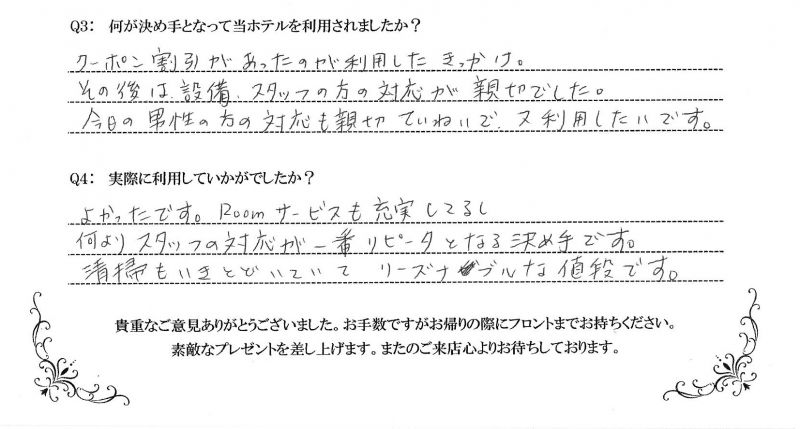 Q3： 何が決め手となって当ホテルを利用されましたか？
クーポン割引があったのが利用したきっかけ。
その後は設備、スタッフの方の対応が親切でした。
今日の男性の方の対応も親切ていねいで、又利用したいです。
Q4： 実際に利用していかがでしたか？
よかったです。Roomサービスも充実してるし
何よりスタッフの対応が一番リピータとなる決め手です。
清掃もいきとどいていて リーズナブルな値段です。
貴重なご意見ありがとうございました。お手数ですがお帰りの際にフロントまでお持ちください。
素敵なプレゼントを差し上げます。またのご来店心よりお待ちしております。